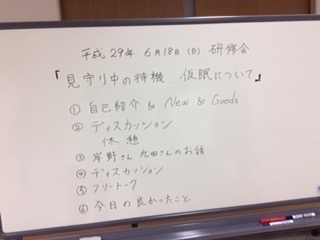 平成29年 6月18日(日) 研修会
「見守り中の待機、仮眠について」
① 自己紹介 & New & Goods
② ディスカッション
休憩
③ 岸野さん 丸田さんのお話
④ ディスカッション
⑤ フリートーク
⑥ 今日の良かったこと